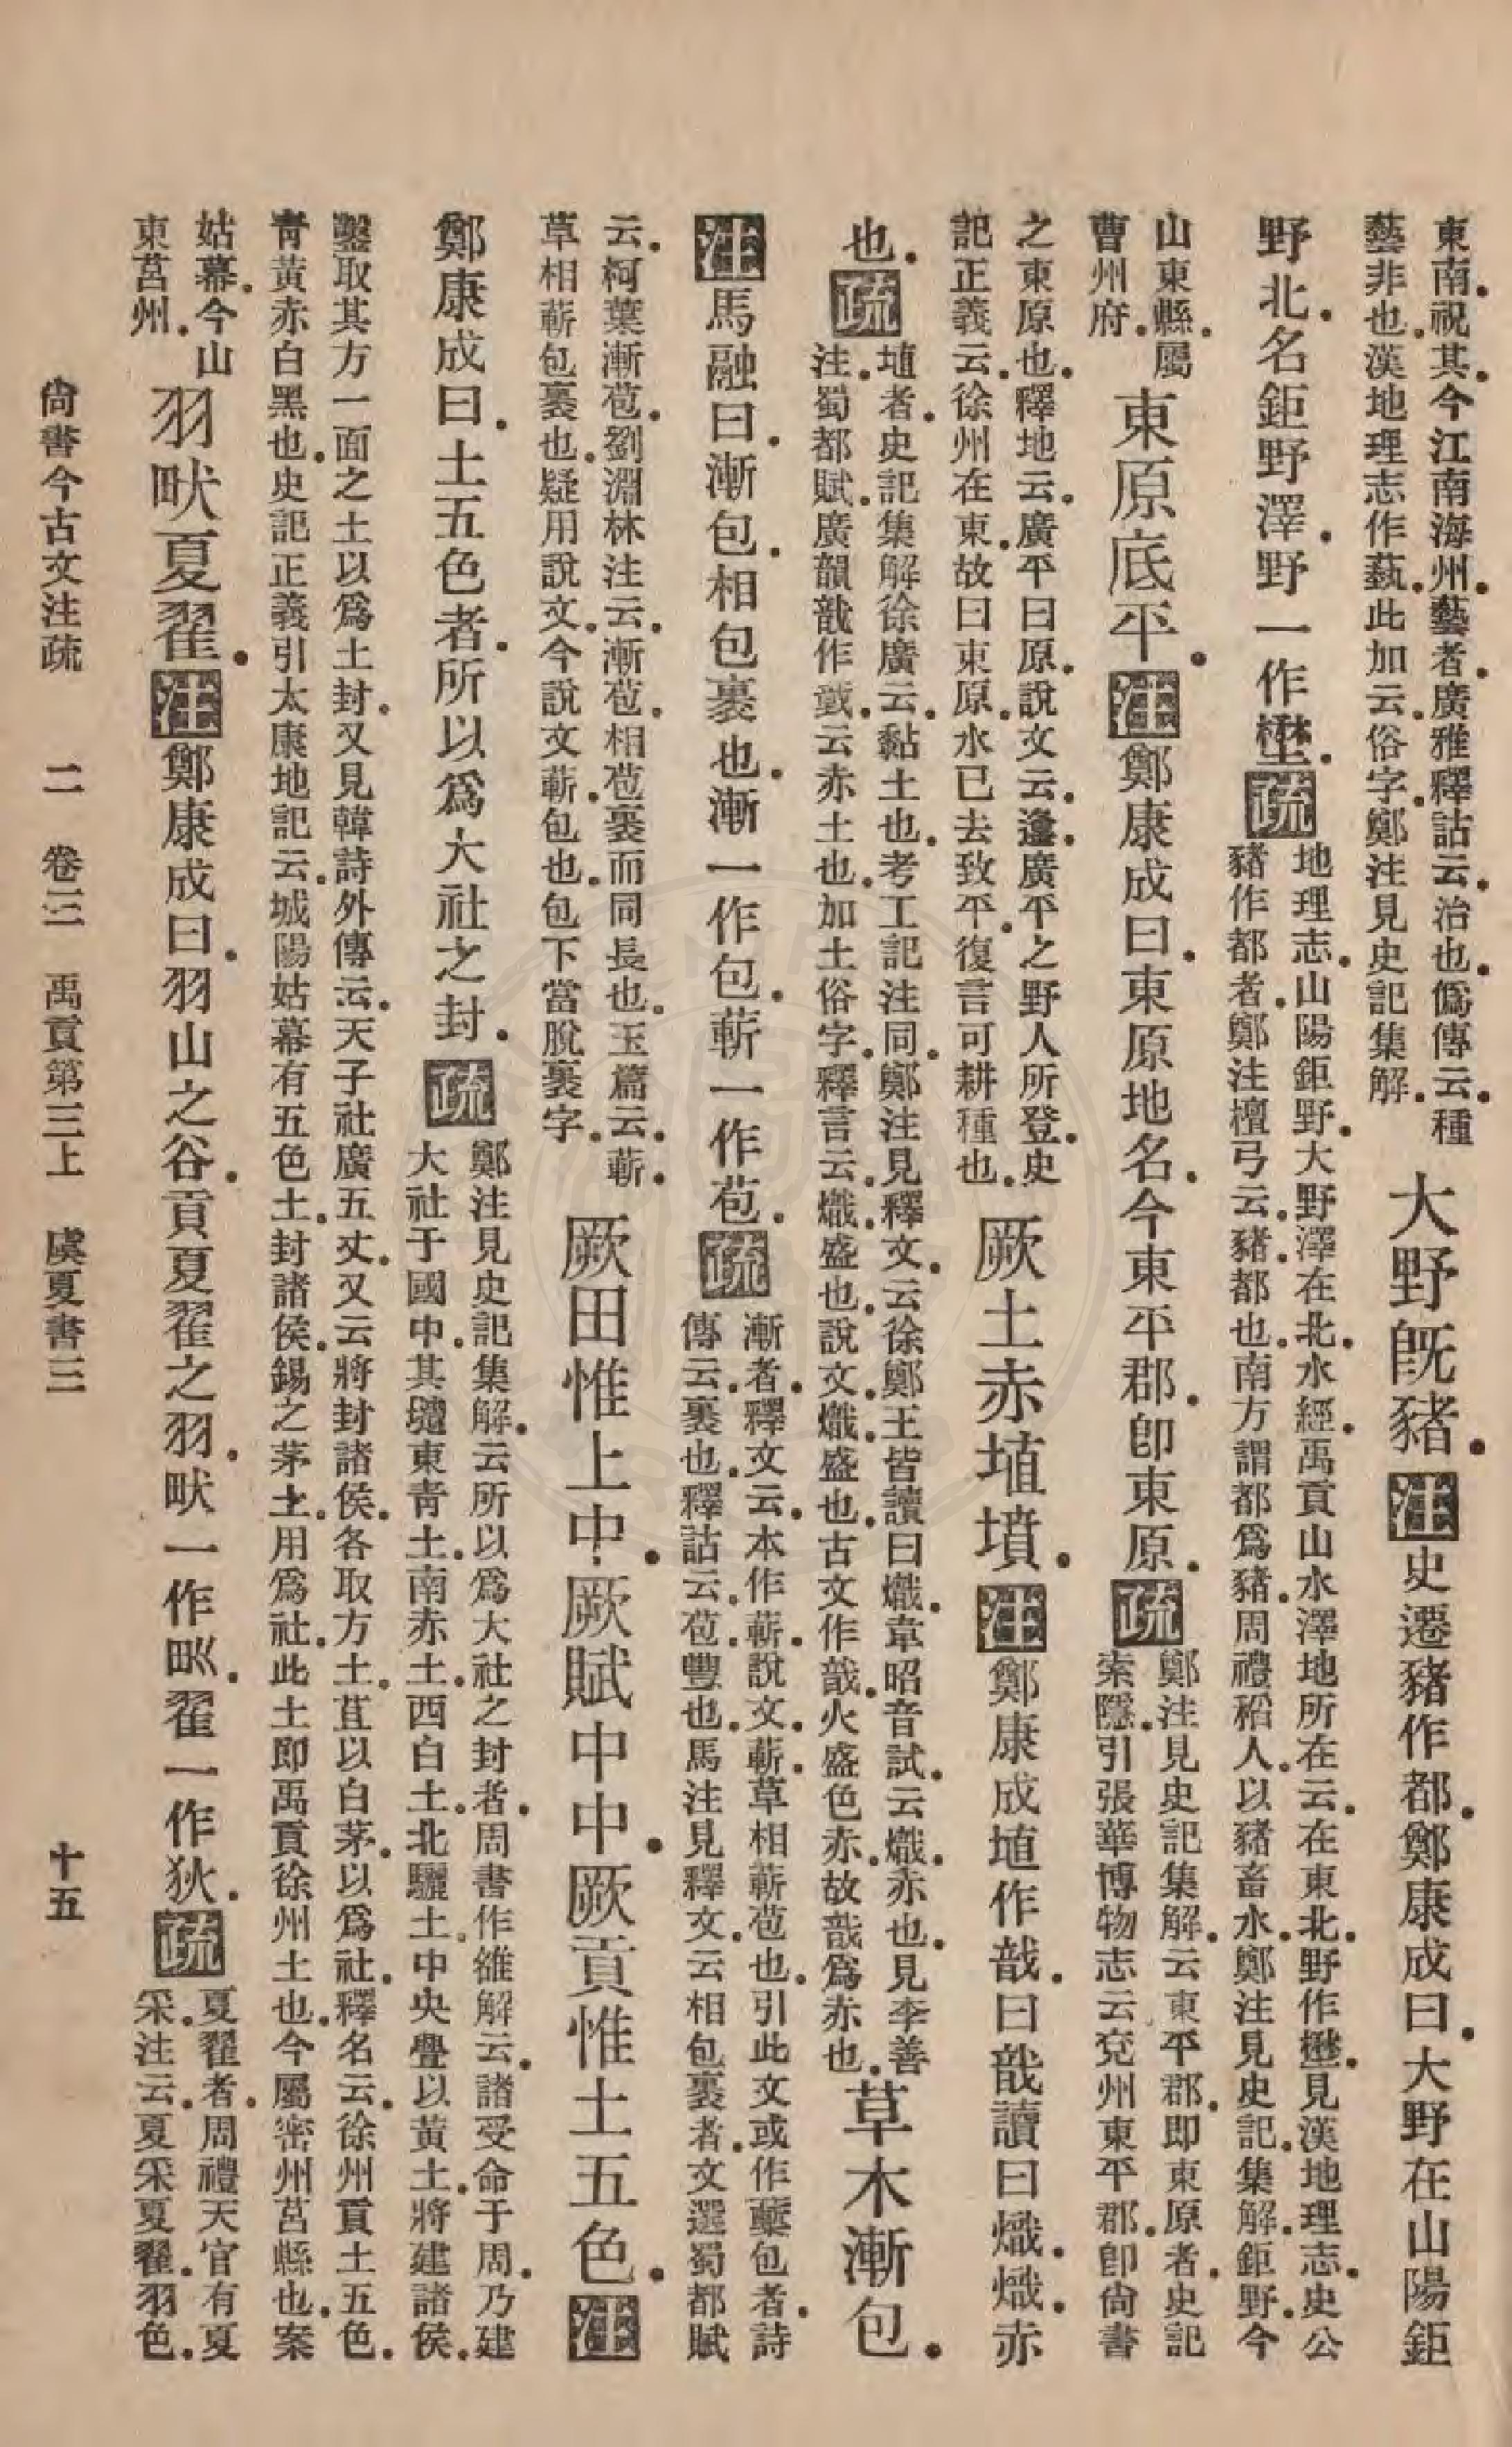 東南．祝其．今江南海州．藝者．廣雅釋詁云．治也．僞傳云．種
藝非也．漢地理志作蓺．此加云．俗字．鄭注見史記集解．
大野既豬．注史遷豬作都．鄭康成曰．大野在山陽鉅
野北．名鉅野澤．野一作壄．疏
地理志．山陽鉅野．大野澤在北．水經．禹貢山水澤地所在云．在東北．野作壄．見漢地理志．史公
豬作都者．鄭注檀弓云．豬．都也．南方謂都爲豬．周禮稻人．以豬畜水．鄭注見史記．集解．鉅野．今
山東縣．屬
曹州府．
東原底平．注鄭康成曰．東原地名．今東平郡．卽東原．疏
鄭注見史記集解．云東平郡．即東原者．史記
索隱．引張華博物志云兗州東平郡．卽尙書
之東原也．釋地云．廣平曰原．說文云．邍．廣平之野人所登．史
記正義云．徐州在東．故曰東原．水已去致平．復言可耕種也．
厥土赤埴墳．注鄭康成埴作戠．曰戠讀曰熾．熾．赤
也．疏
埴者．史記集解徐廣云．黏土也．考工記注同．鄭注見釋文．云徐鄭王皆讀曰熾．韋昭音試．云熾．赤也．見李善
注．蜀都賦．廣韻戠作䵂．云赤土也．加土俗字．釋言云．熾．盛也．說文．熾．盛也．古文作戠．火盛色赤．故戠爲赤也．
草木漸包．
注馬融曰．漸包．相包裹也．漸一作包．蔪一作苞．疏
漸者．釋文云．本作蔪．說文．蔪．草相蔪苞也．引此文或作蘻包者．詩
傳云．裹也．釋詁云．苞．豐也．馬注見釋文．云相包裹者．文選蜀都賦
云．柯葉漸苞．劉淵林注云．漸苞．相苞裹而同長也．玉篇云．蔪．
草相蔪包裹也．疑用說文．今說文．蔪．包也．包下當脫裹字．
厥田惟上中．厥賦中中．厥貢惟土五色．注
鄭康成曰．土五色者．所以爲大社之封．疏
鄭注見史記集解．云所以爲大社之封者．周書作雒解云．諸受命于周．乃建
大社于國中．其壝東青土．南赤土．西白土．北驪土．中央舋以黃土．將建諸侯．
鑿取其方一面之土以爲土封．又見韓詩外傳云．天子社廣五丈．又云將封諸侯．各取方土．苴以白茅．以爲社．釋名云．徐州貢土五色．
青黃赤白黑也．史記正義引太康地記云．城陽姑幕有五色土．封諸侯．錫之茅土．用爲社．此土即禹貢徐州土也．今屬密州莒縣也．案
姑幕．今山
東莒州．
羽畎夏翟．注鄭康成曰．羽山之谷．貢夏翟之羽．畎一作𤰝．翟一作狄．疏
夏翟者．周禮天官有夏
采．注云．夏采夏翟．羽色．
尙書今古文注疏　二　卷三　禹貢第三上　虞夏書三　十五